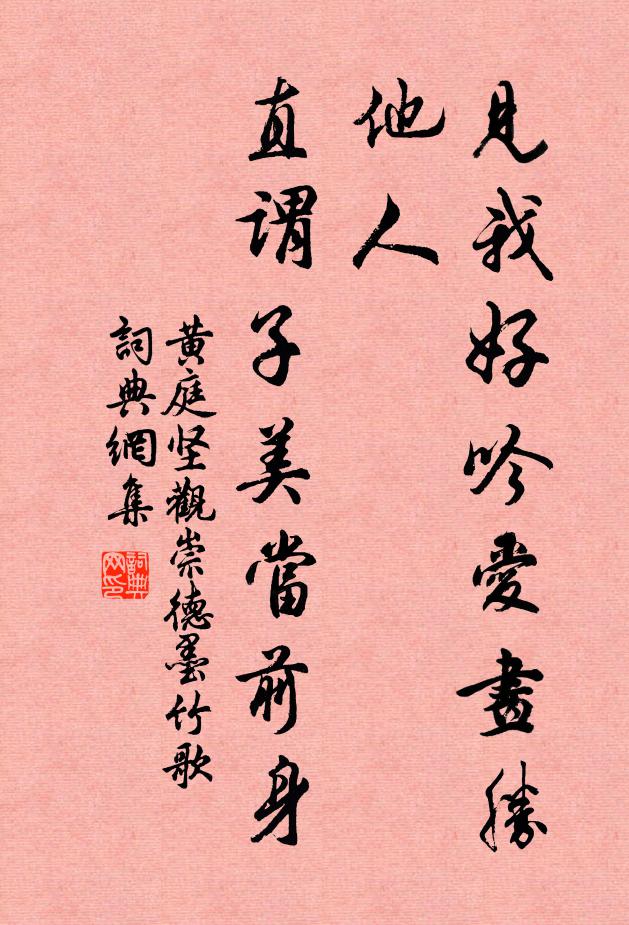 見我好吟愛畫勝
他人
直謂子美當前身
黄庭坚觀崇德墨竹歌
詞典網集
詞典
网印